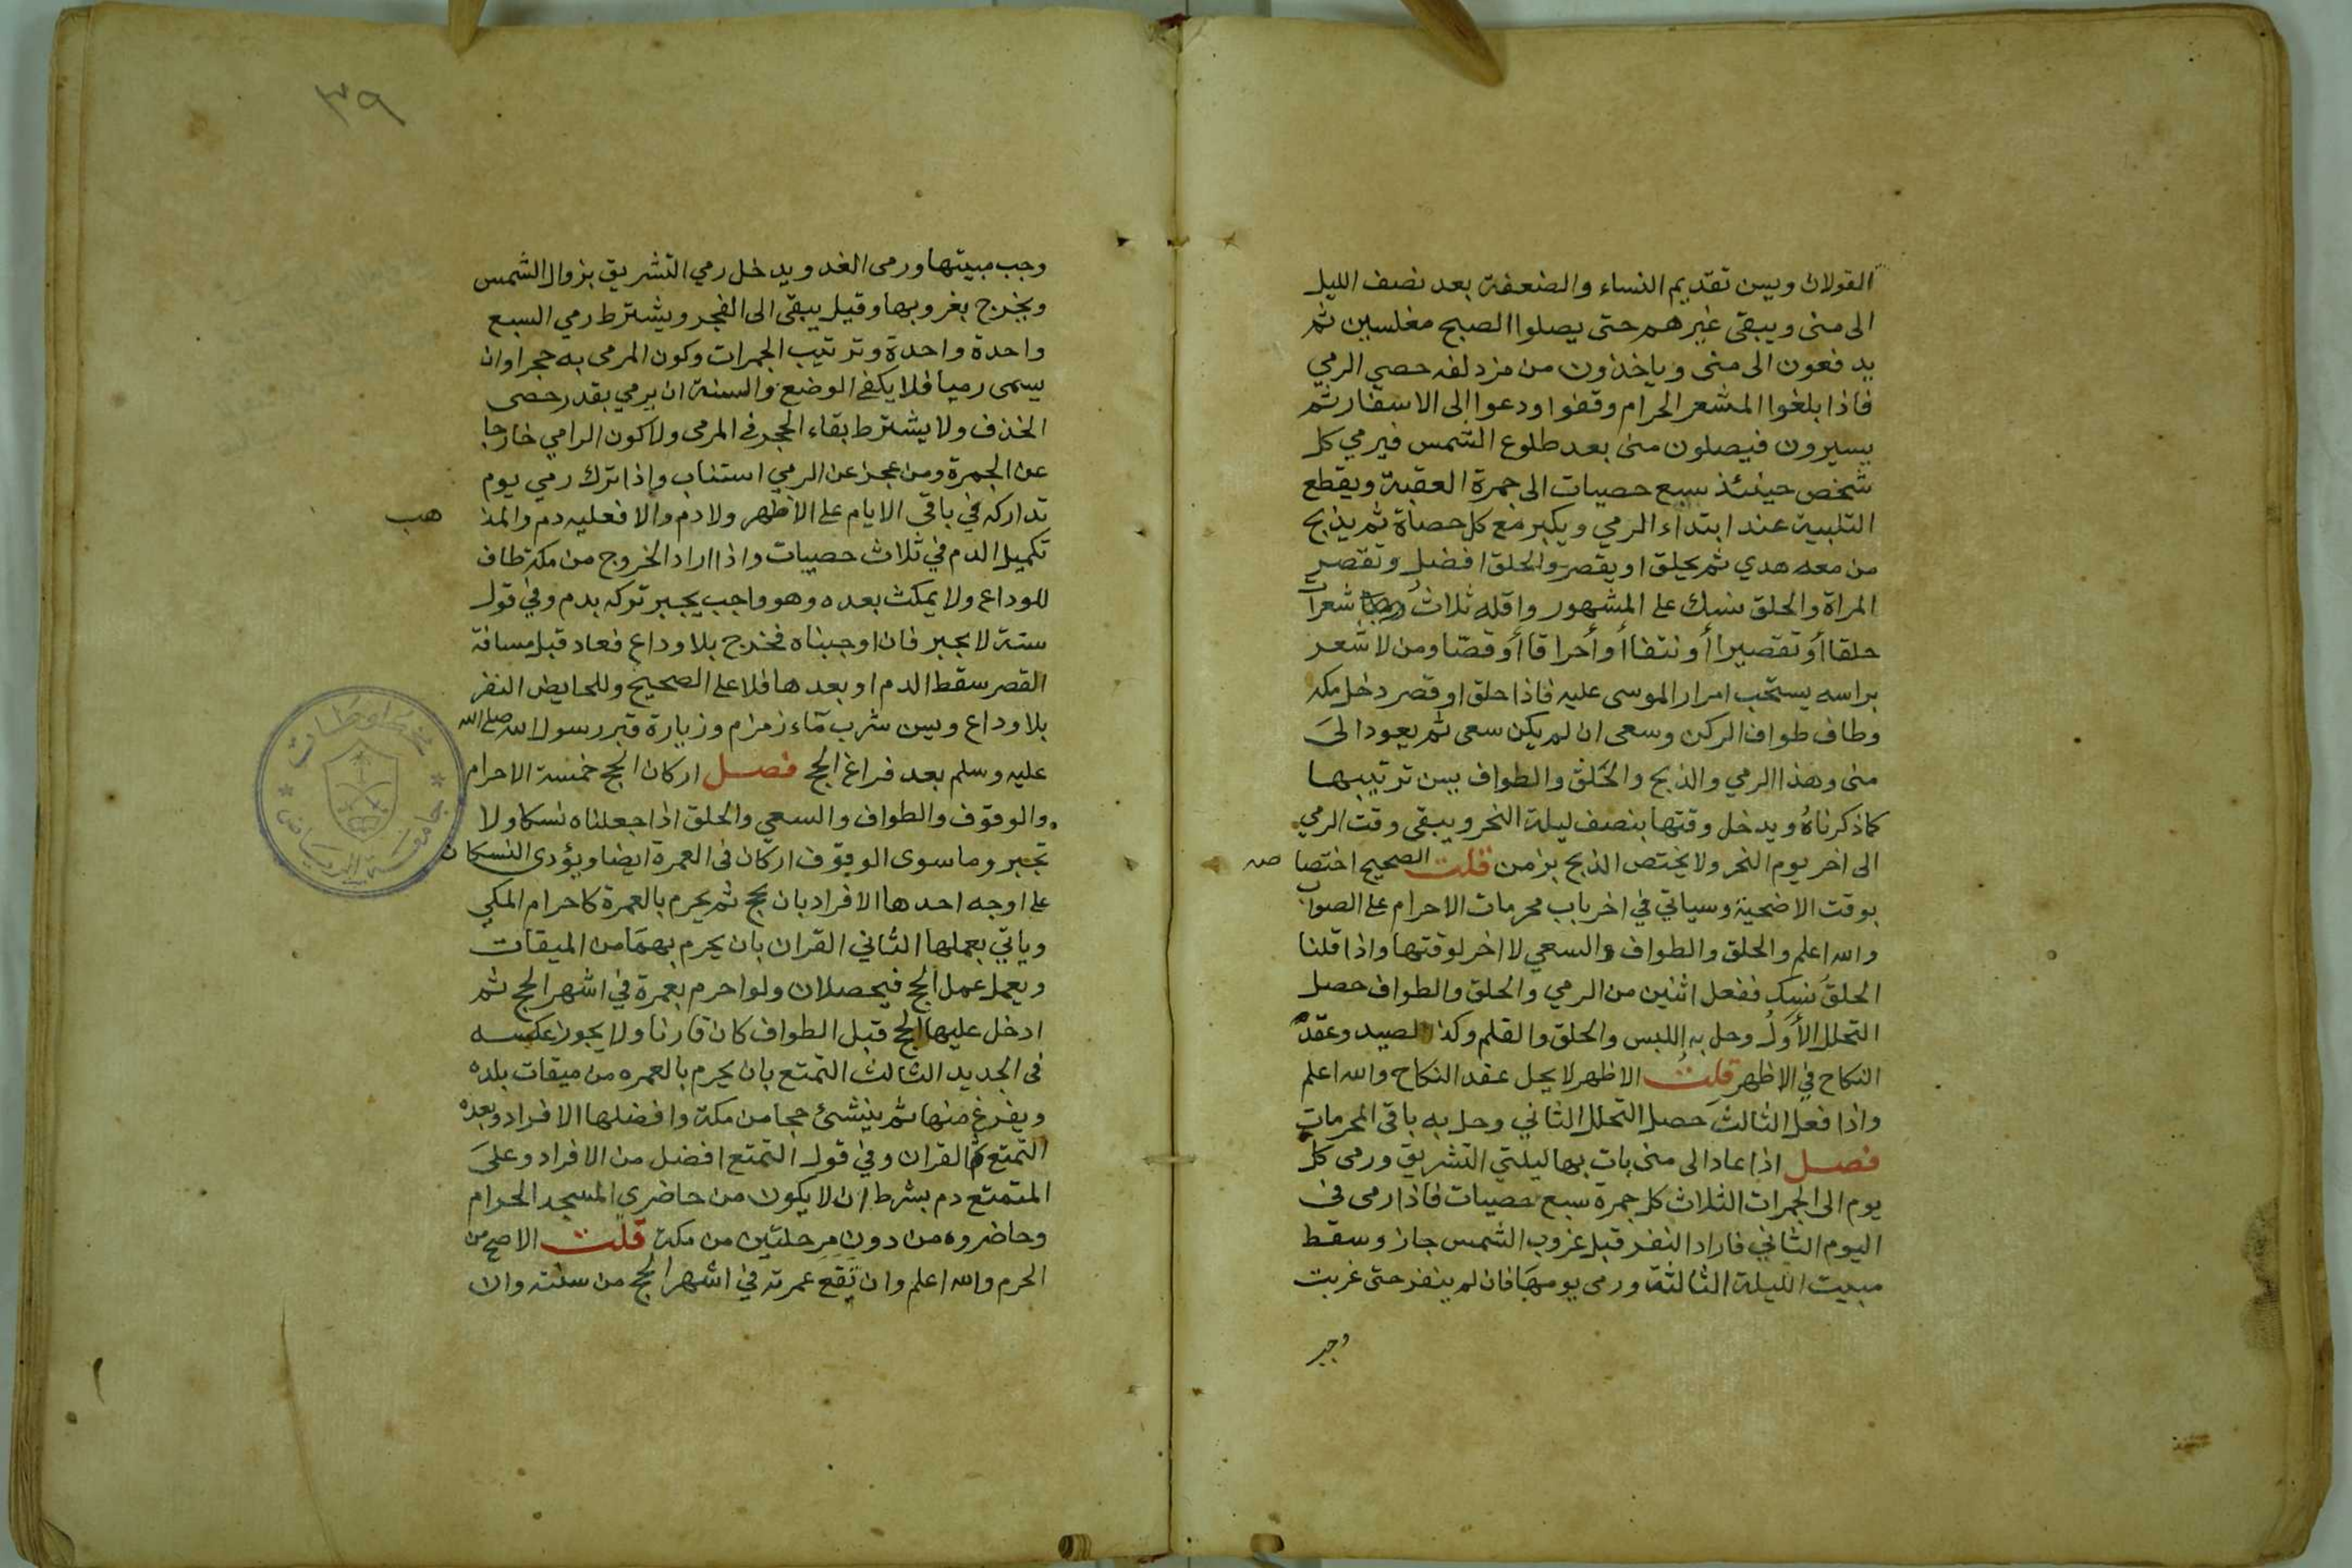 القولان ويسن تقديم النساء والضعفة بعد نصف الليل
الى منى ويبقى غيرهم حتى يصلوا الصبح مغلسين ثم
يدفعون الى منى وياخذون من مزدلفه حصى الرمي
فاذا بلغوا المشعر الحرام وقفوا ودعوا الى الاسفار ثم
يسيرون فيصلون منى بعد طلوع الشمس فيرمي كل
شخص حينئذ سبع حصيات الى جمرة العقبة ويقطع
التلبية عند ابتداء الرمي ويكبر مع كل حصاة ثم يذبح
من معه هدي ثم يحلق او يقصر والحلق افضل وتقصر
المراة والحلق نسك على المشهور واقله ثلاث شعرات
حلقا أو تقصيرا أو نتفا أو أحراقا أو قصا ومن لا شعر
براسه يستحب امرار الموسى عليه فاذا حلق او قصر دخل مكه
وطاف طواف الركن وسعى ان لم يكن سعى ثم يعود الى
منى وهذا الرمي والذبح والحلق والطواف يسن ترتيبها
كما ذكرناه ويدخل وقتها بنصف ليلة النحر ويبقى وقت الرمي
الى اخر يوم النحر ولا يختص الذبح بزمن قلت الصحيح اختصا صه
بوقت الاضحية وسياتي في اخر باب محرمات الاحرام على الصواب
والله اعلم والحلق والطواف والسعي لا اخر لوقتها واذا قلنا
الحلق نسك ففعل اثنين من الرمي والحلق والطواف حصل
التحلل الأول وحل به اللبس والحلق والقلم وكذا الصيد وعقد
النكاح في الاظهر قلت الاظهر لا يحل عقد النكاح والله اعلم
واذا فعل الثالث حصل التحلل الثاني وحل به باقى المحرمات
فصل اذا عاد الى منى بات بها ليلتي التشريق ورمى كل
يوم الى الجمرات الثلاث كل جمرة سبع حصيات فاذا رمى في
اليوم الثاني فاراد النفر قبل غروب الشمس جاز وسقط
مبيت الليلة الثالثة ورمى يومها فان لم ينفر حتى غربت
وجب
٣٩
وجب مبيتها ورمى الغد ويدخل رمي التشريق بزوال الشمس
ويخرج بغروبها وقيل يبقى الى الفجر ويشترط رمي السبع
واحدة واحدة وترتيب الجمرات وكون المرمى به حجرا وان
يسمى رميا فلا يكفي الوضع والسنة ان يرمي بقدر حصى
الخذف ولا يشترط بقاء الحجر في المرمى ولا كون الرامي خارجا
عن الجمرة ومن عجز عن الرمي استناب واذا ترك رمي يوم
تداركه في باقي الايام على الاظهر ولا دم والا فعليه دم والمذ هب
تكميل الدم في ثلاث حصيات واذا اراد الخروج من مكة طاف
للوداع ولا يمكث بعده وهو واجب يجبر تركه بدم وفي قول
سنة لا يجبر فان اوجبناه فخرج بلا وداع فعاد قبل مسافة
القصر سقط الدم او بعدها فلا على الصحيح وللحايض النفر
بلا وداع ويسن شرب ماء زمزم وزيارة قبر رسول الله صلى الله
عليه وسلم بعد فراغ الحج فصل اركان الحج خمسة الاحرام
والوقوف والطواف والسعي والحلق اذا جعلناه نسكا ولا
تجبر وما سوى الوقوف اركان في العمرة ايضا ويؤدى النسكان
على اوجه احدها الافراد بان يحج ثم يحرم بالعمرة كاحرام المكي
وياتي بعملها الثاني القران بان يحرم بهما من الميقات
ويعمل عمل الحج فيحصلان ولو احرم بعمرة في اشهر الحج ثم
ادخل عليها الحج قبل الطواف كان قارنا ولا يجوز عكسه
في الجديد الثالث التمتع بان يحرم بالعمره من ميقات بلده
ويفرغ منها ثم ينشئ حجا من مكة وافضلها الافراد وبعده
التمتع ثم القران وفي قول التمتع افضل من الافراد وعلى
المتمتع دم بشرط ان لا يكون من حاضري المسجد الحرام
وحاضروه من دون مرحلتين من مكة قلت الاصح من
الحرم والله اعلم وان تقع عمرته في اشهر الحج من سنته وان
جامعة الرياض